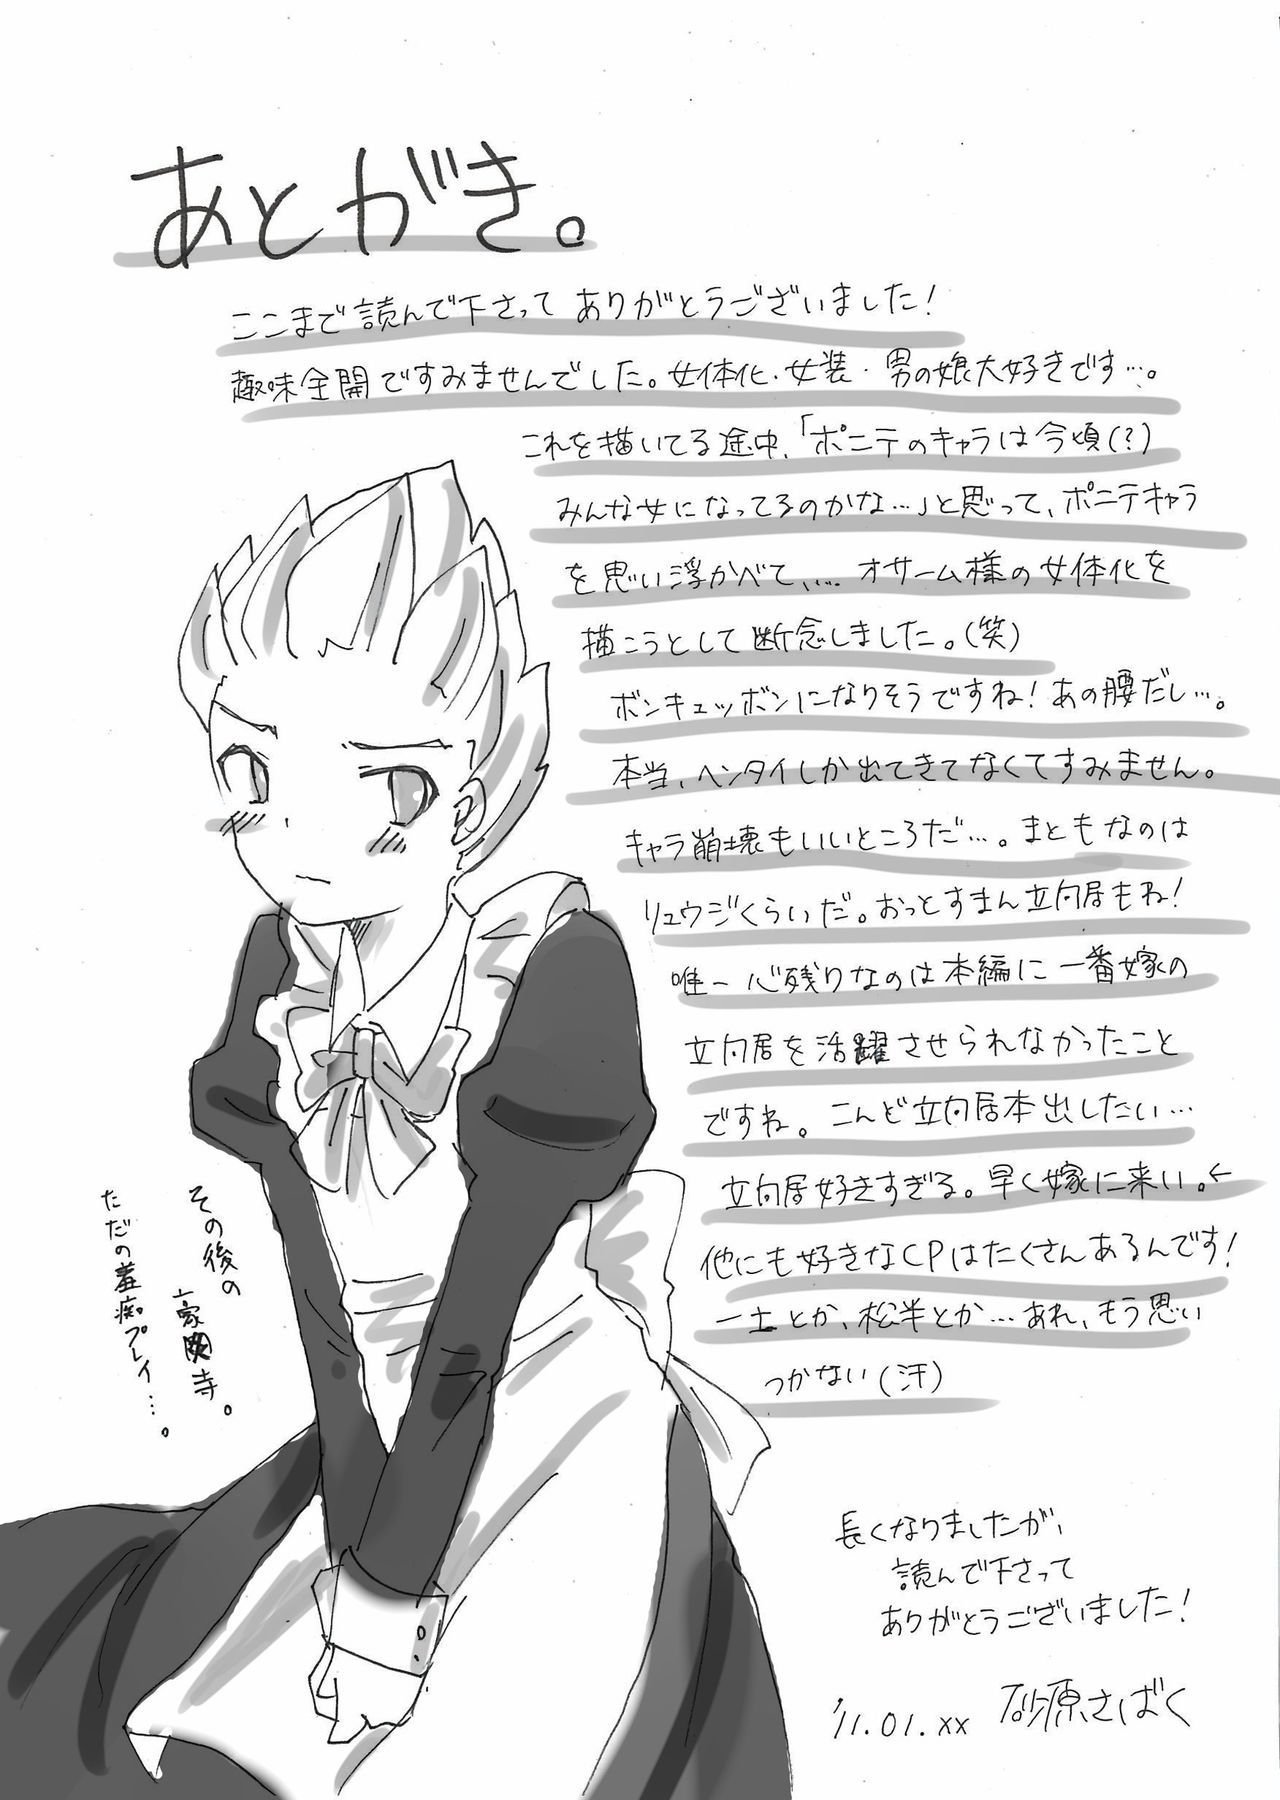 あとがき。
ここまで読んで下さって ありがとうございました!
趣味全開ですみませんでした。女体化・女装・男の娘大好きです…。
これを描いてる途中、「ポニテのキャラは今頃(?)
みんな女になってるのかな…」と思って、ポニテキャラ
を思い浮かべて、… オサーム様の女体化を
描こうとして断念しました。(笑)
ボンキュッボンになりそうですね!あの腰だし…。
本当、ヘンタイしか出てきてなくてすみません。
キャラ崩壊もいいところだ…。まともなのは
リュウジくらいだ。おっとすまん立向居もね!
唯一心残りなのは本編に一番嫁の
立向居を活躍させられなかったこと
ですね。こんど立向居本出したい…
立向居好きすぎる。早く嫁に来い。←
他にも好きなCPはたくさんあるんです!
一土とか、松半とか…あれ、もう思い
つかない(汗)
その後の
豪炎寺。
ただの羞痴プレイ…。
長くなりましたが、
読んで下さって
ありがとうございました!
'11.01.xx 砂原さばく